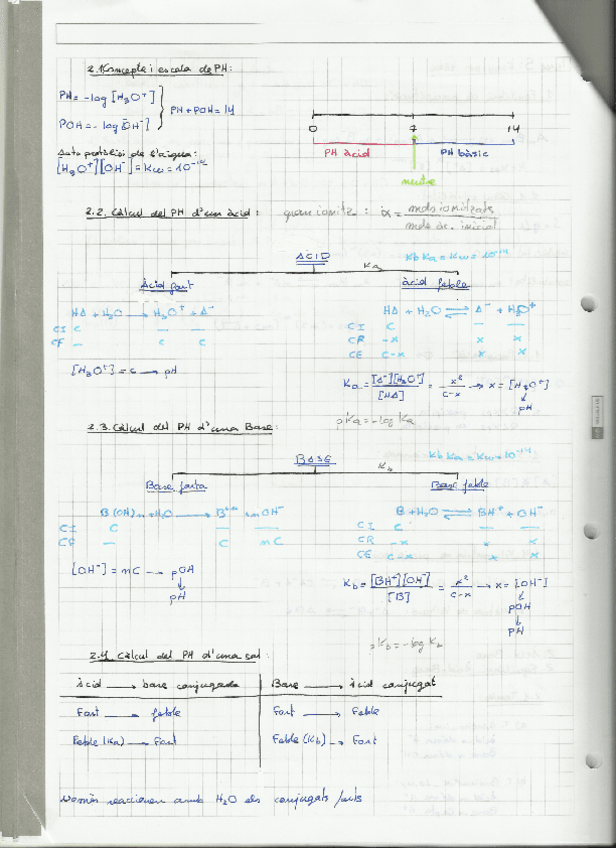 2.1 Koncepte i escala de PH:
PH = -log [H3O+]
POH = -log [OH-]
PH + POH = 14
0 7 14
PH àcid PH bàsic
neutre
Autoprotòlisi de l'aigua:
[H3O+][OH-] = Kw = 10-14
2.2. Càlcul del PH d'un àcid: grau ionitz: α = mols ionitzats / mols àc. inicial
ÀCID
Ka
Kb Ka = Kw = 10-14
Àcid fort
àcid feble
HA + H2O → H3O+ + A-
CI C — —
CF — C C
HA + H2O ⇌ A- + H3O+
CI C — —
CR -x x x
CE C-x x x
[H3O+] = c → pH
Ka = [A-][H3O+] / [HA] = x2 / c-x → x = [H3O+]
↓
pH
pKa = -log Ka
2.3. Càlcul del PH d'una Base:
BASE
Kb
Kb Ka = Kw = 10-14
Base forta
Base feble
B(OH)n + H2O → Bn+ + nOH-
CI C — —
CF — C nC
B + H2O ⇌ BH+ + OH-
CI C — —
CR -x x x
CE C-x x x
[OH-] = nC → pOH
↓
pH
Kb = [BH+][OH-] / [B] = x2 / c-x → x = [OH-]
↓
pOH
↓
PH
pKb = -log Kb
2.4. Càlcul del PH d'una sal:
Àcid → base conjugada
Base → àcid conjugat
Fort → feble
Fort → Feble
Feble (Ka) → Fort
Feble (Kb) → Fort
Només reaccionen amb H2O els conjugats forts